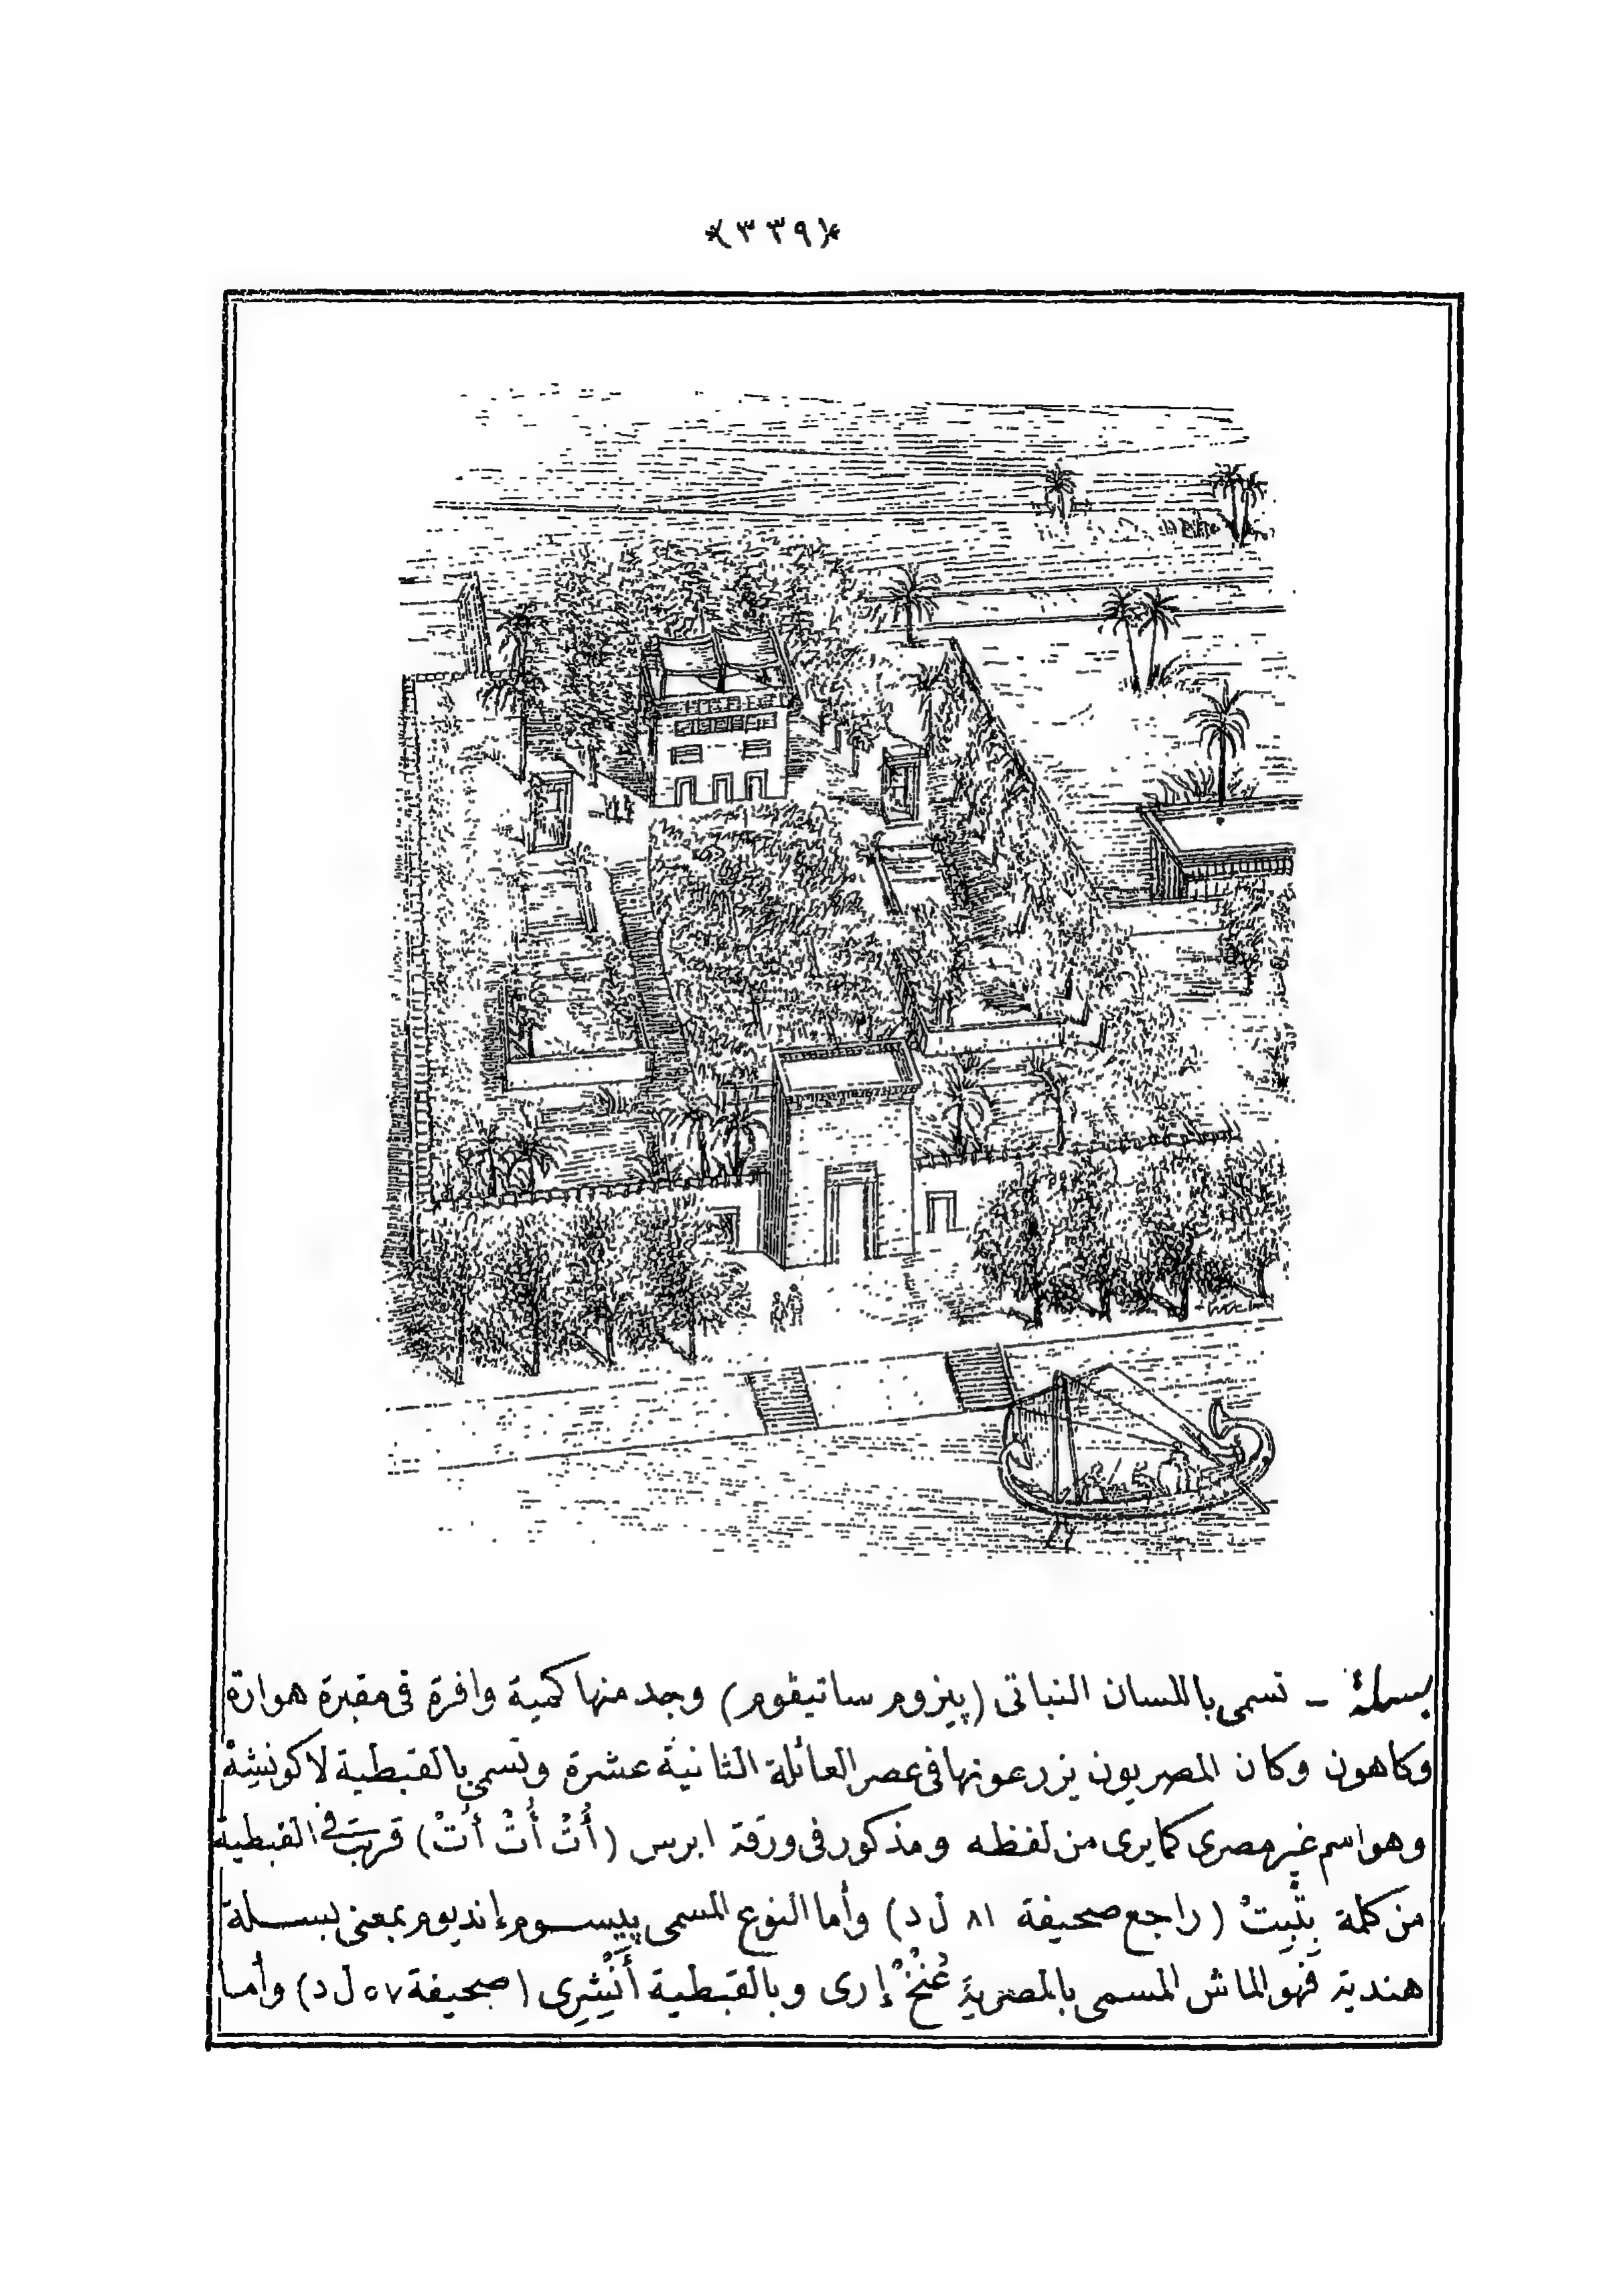 *(٣٣٩)*
بسلة - تسمى باللسان النباتى (پيزوم ساتيڤوم) وجد منها كمية وافرة فى مقبرة هوارة
وكاهون وكان المصريون يزرعونها فى عصر العائلة الثانية عشرة وتسمى بالقبطية لاكونشِةْ
وهو اسم غير مصرى كما يرى من لفظه ومذكور فى ورقة ابرس (أُتْ أُتْ أتْ) قربت فى القبطية
من كلمة بِتْبِتْ (راجع صحيفة ٨١ ل د) وأما النوع المسمى پيسوم إنديوم بمعنى بسلة
هندية فهو الماش المسمى بالمصرية عُنخْ إرى وبالقبطية أَنْشِرِى (صحيفة ٥٧ ل د) وأما